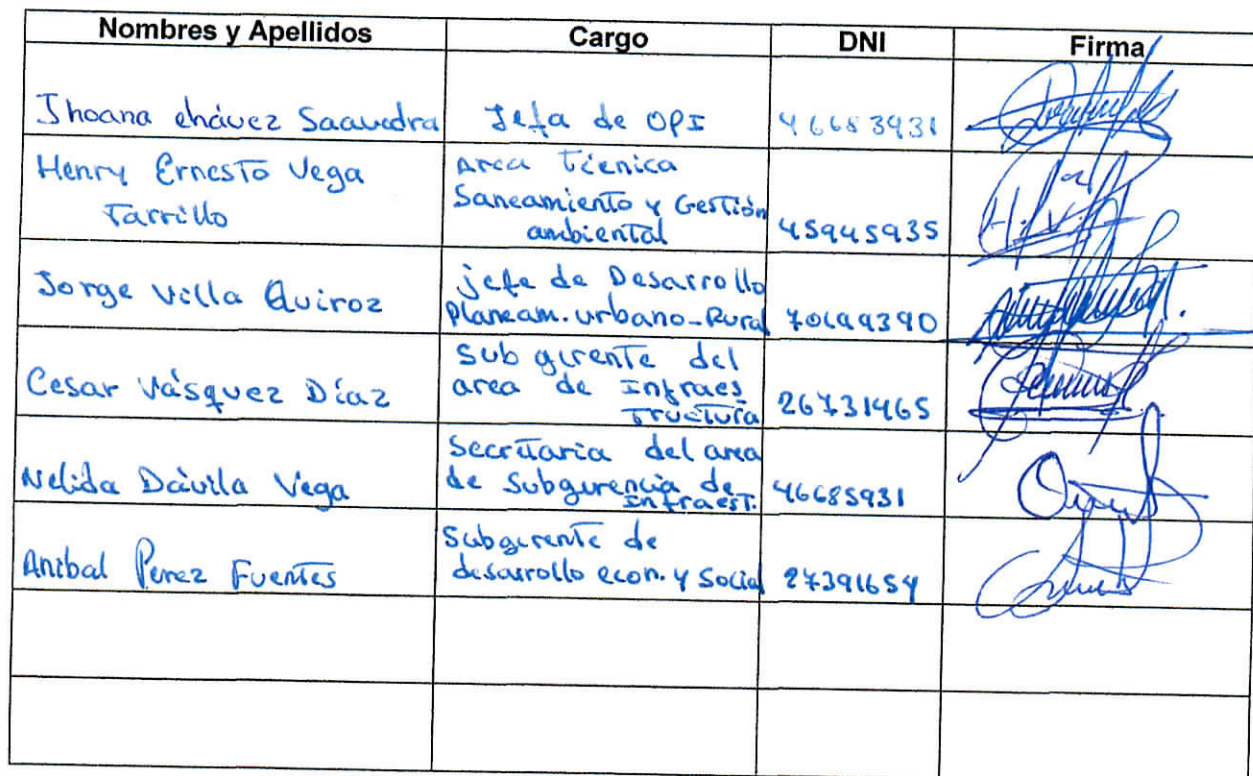 Nombres y Apellidos Cargo DNI Firma
Jhoana chávez Saavedra Jefa de OPI 46683931
Henry Ernesto Vega Tarrillo
Area técnica
Saneamiento y Gestión
ambiental 45945935
Jorge Villa Quiroz
jefe de Desarrollo
Planeam. urbano-Rural 70699390
Cesar Vásquez Díaz
Sub gerente del
area de Infraes
tructura 26731465
Nelida Dávila Vega
Secretaria del area
de Subgerencia de
Infraest. 46685931
Anibal Perez Fuentes
Subgerente de
desarrollo econ. y Social 27391654